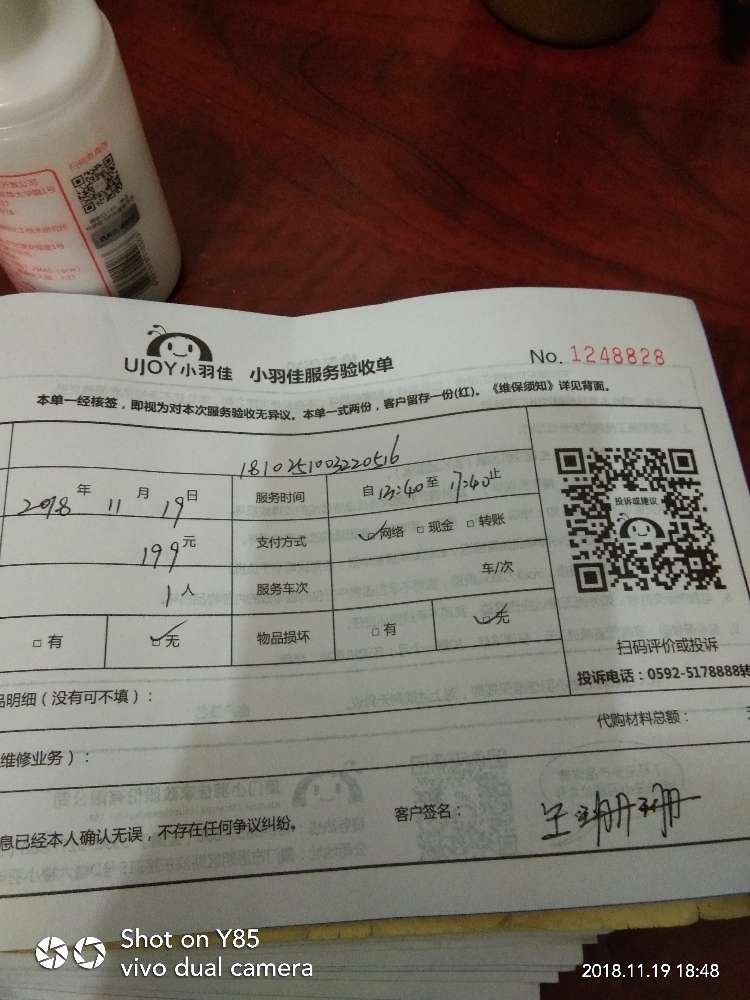 UJOY小羽佳 小羽佳服务验收单
No. 1248828
本单一经核签，即视为对本次服务验收无异议。本单一式两份，客户留存一份(红)。《维保须知》详见背面。
1810251003220516
2018年 11月 19日 服务时间 自13:40至17:40止
199元 支付方式 网络 现金 转账
1人 服务车次 车/次
有 无 物品损坏 有 无
投诉或建议
扫码评价或投诉
投诉电话：0592-5178888转
品明细（没有可不填）：
代购材料总额：
维修业务）：
息已经本人确认无误，不存在任何争议纠纷。
客户签名：
Shot on Y85
vivo dual camera
2018.11.19 18:48